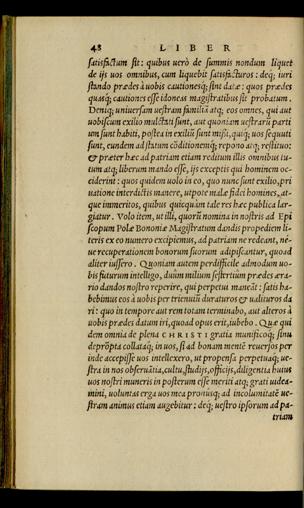 48 LIBER
satisfactum sit: quibus uerò de summis nondum liquet
de ijs uos omnibus, cum liquebit satisfacturos: deq́; iuri
stando prædes à uobis cautionesq́; sint datæ: quos prædes
quasq́; cautiones esse idoneas magistratibus sit probatum.
Deniq; uniuersam uestram familiā atq; eos omnes, qui aut
uobiscum exilio mulctati sunt, aut quoniam uestrarū parti
um sunt habiti, postea in exiliū sunt missi, quiq́; uos sequuti
sunt, eundem ad statum cōditionemq́; repono atq; restituo:
& præter hæc ad patriam etiam reditum illis omnibus tu-
tum atq; liberum mando esse, ijs exceptis qui hominem oc-
ciderint: quos quidem uolo in eo, quo nunc sunt exilio, pri
uatione interdictis manere, utpote malæ fidei homines, at-
que immeritos, quibus quicquàm tale res hæc publica lar-
giatur. Volo item, ut illi, quorū nomina in nostris ad Epi
scopum Polæ Bononiæ Magistratum dandis propediem li-
teris ex eo numero excipiemus, ad patriam ne redeant, né-
ue recuperationem bonorum suorum adipiscantur, quoad
aliter iussero. Quoniam autem perdifficile admodum uo-
bis futurum intellego, duûm milium sestertiûm prædes æra-
rio dandos nostro reperire, qui perpetuè maneāt: satis ha-
bebimus eos à uobis per triennium duraturos & ualituros da
ri: quo in tempore aut rem totam terminabo, aut alteros à
uobis prædes datum iri, quoad opus erit, iubebo. Quæ qui
dem omnia de plena CHRISTI gratia munificoq́; sinu
deprōpta collataq́; in uos, si ad bonam mentē reuersos per
inde accepisse uos intellexero, ut propensa perpetuaq́; ue-
stra in nos obseruātia, cultu, studijs, officijs, diligentia huius
uos nostri muneris in posterum esse meriti atq; grati uidea-
mini, uoluntas erga uos mea pronaq́; ad incolumitatē ue-
stram animus etiam augebitur: deq́; uestro ipsorum ad pa-
triam